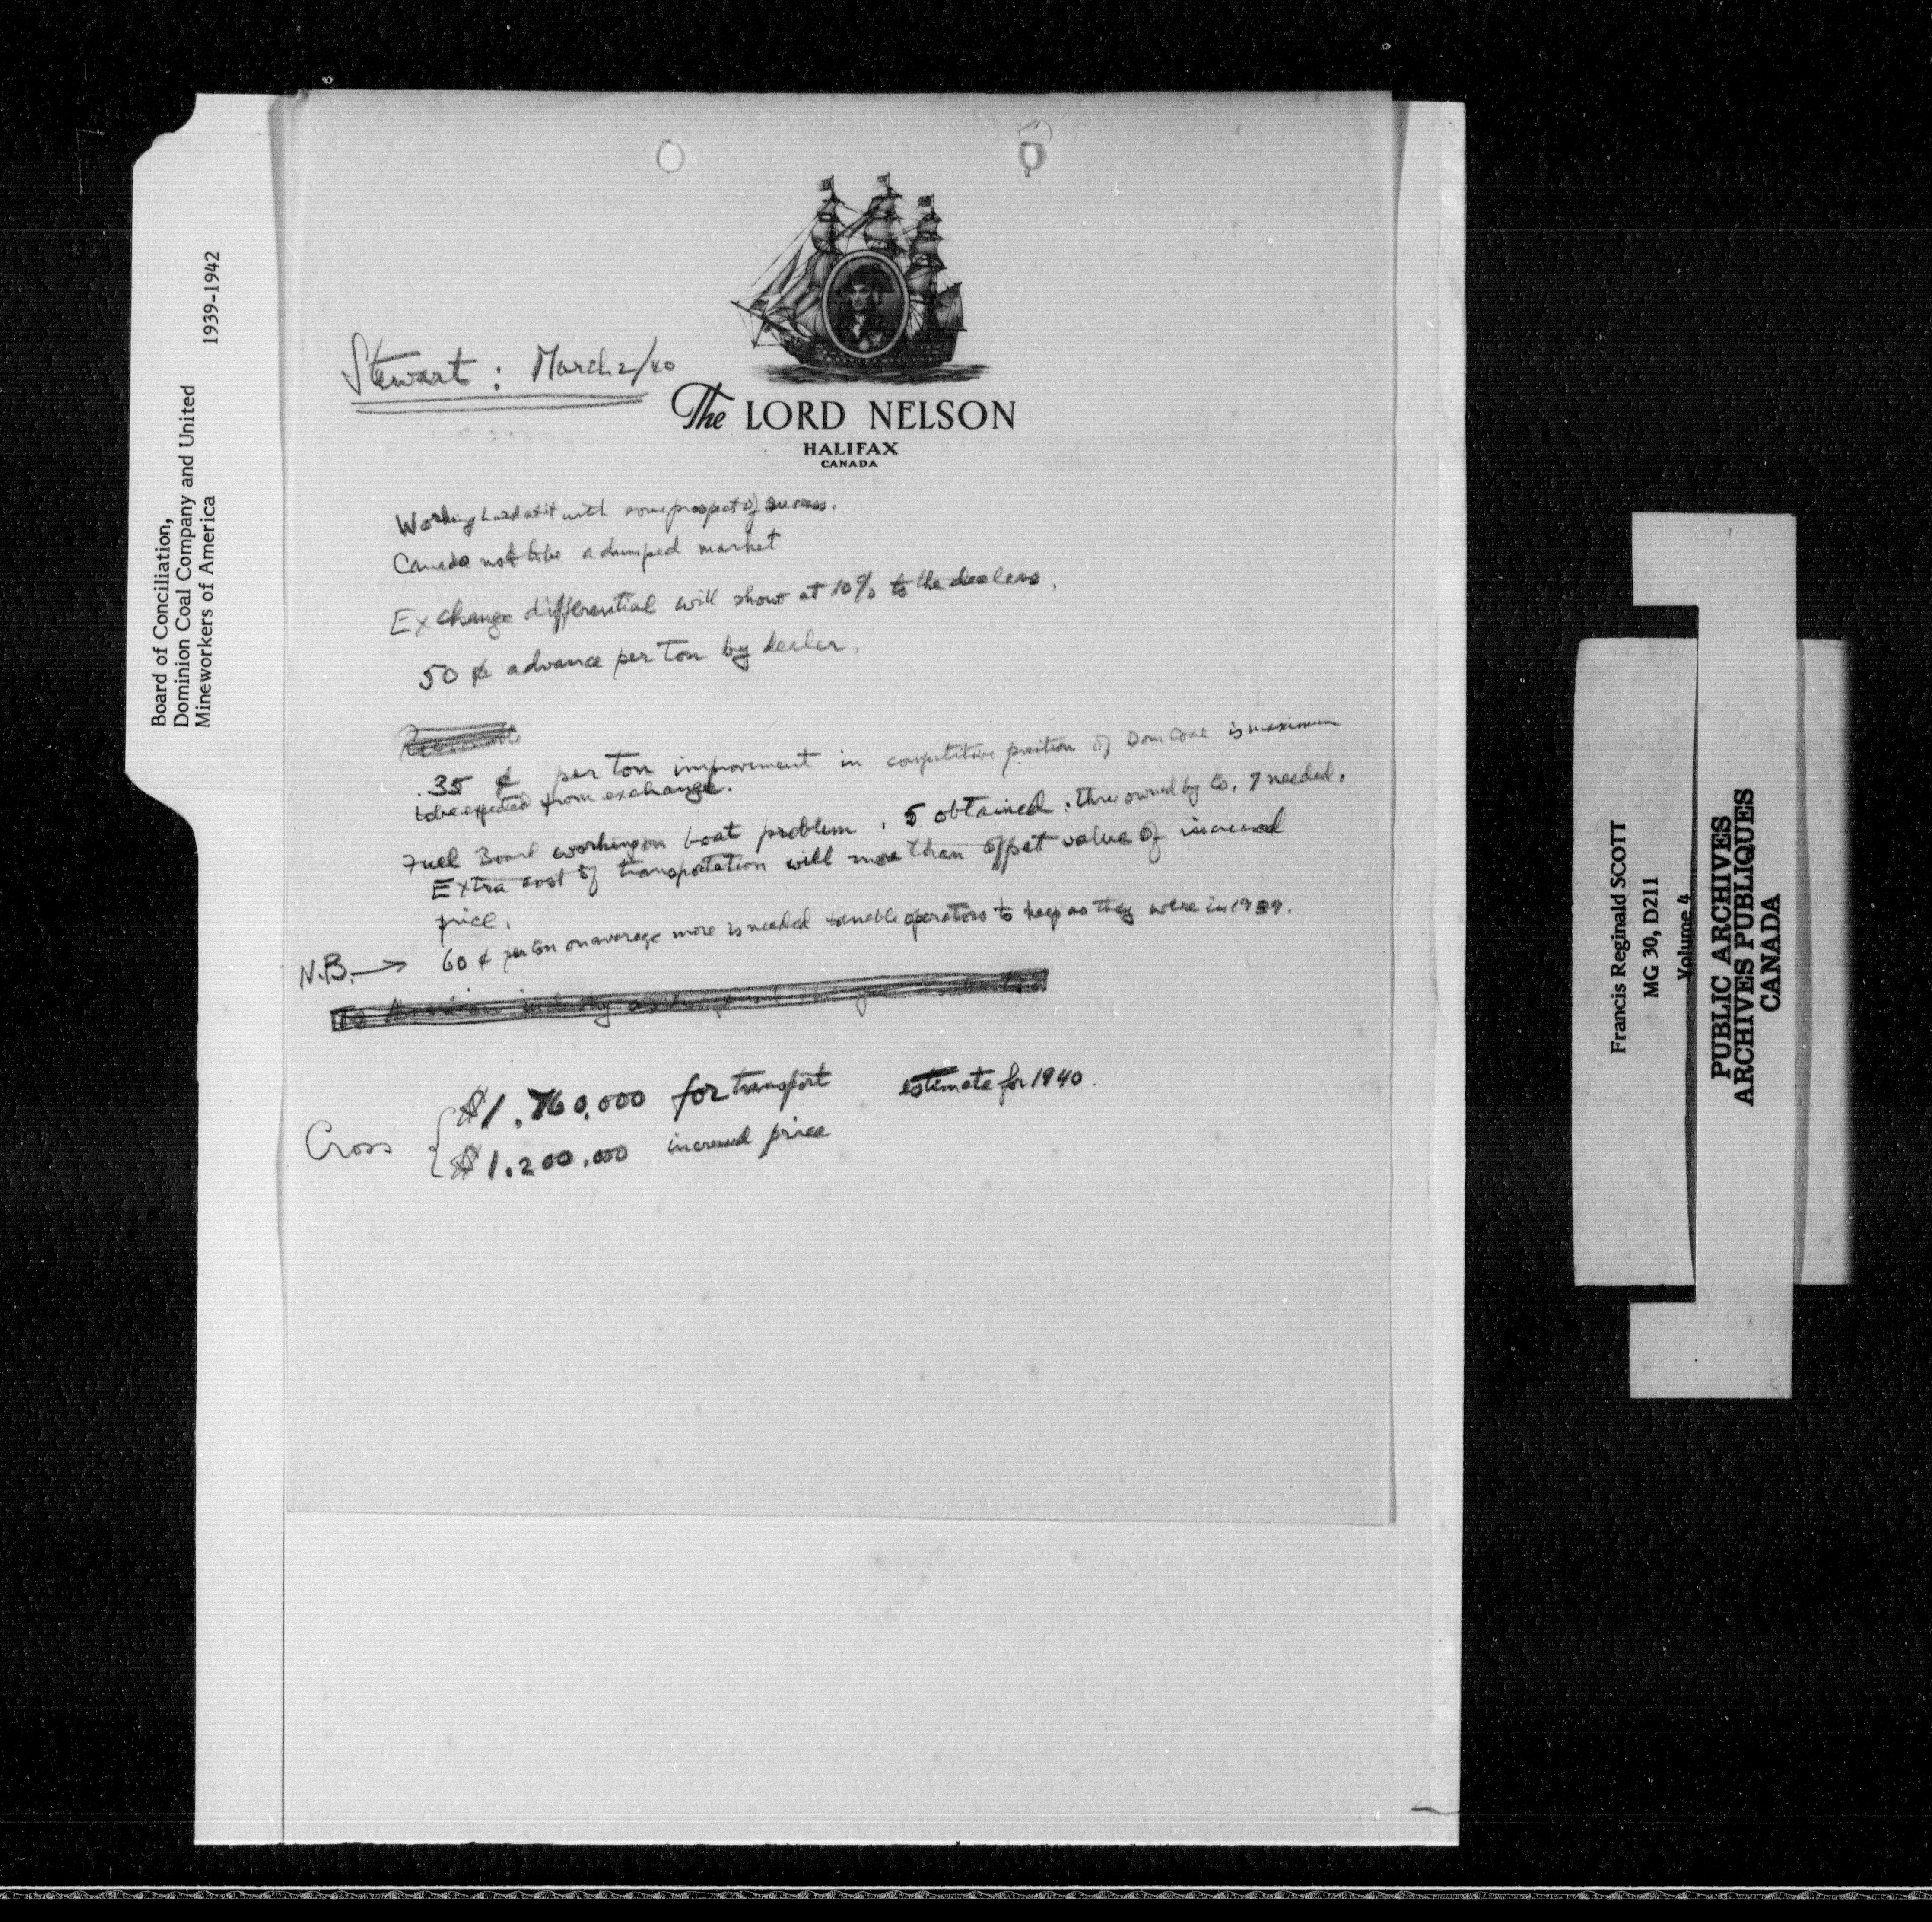 Board of Conciliation,
Dominion Coal Company and United
Mineworkers of America 1939-1942
Stewart : March 2/40
The LORD NELSON
HALIFAX
CANADA
Working hard at it with some prospect of success.
Canada not to be a dumped market
Exchange differential will show at 10% to the dealers.
50 ¢ advance per ton by dealer.
.35 ¢ per ton improvement in competitive position of Dom Coal is maximum
to be expected from exchange.
Fuel Board working on boat problem. 5 obtained : three owned by Co, 7 needed.
Extra cost of transportation will more than offset value of increased
price.
N.B. → 60 ¢ per ton on average more is needed to enable operators to keep as they were in 1939.
Cross { $1.760.000 for transport estimate for 1940.
$1.200.000 increased price
Francis Reginald SCOTT
MG 30, D211
Volume 4
PUBLIC ARCHIVES
ARCHIVES PUBLIQUES
CANADA